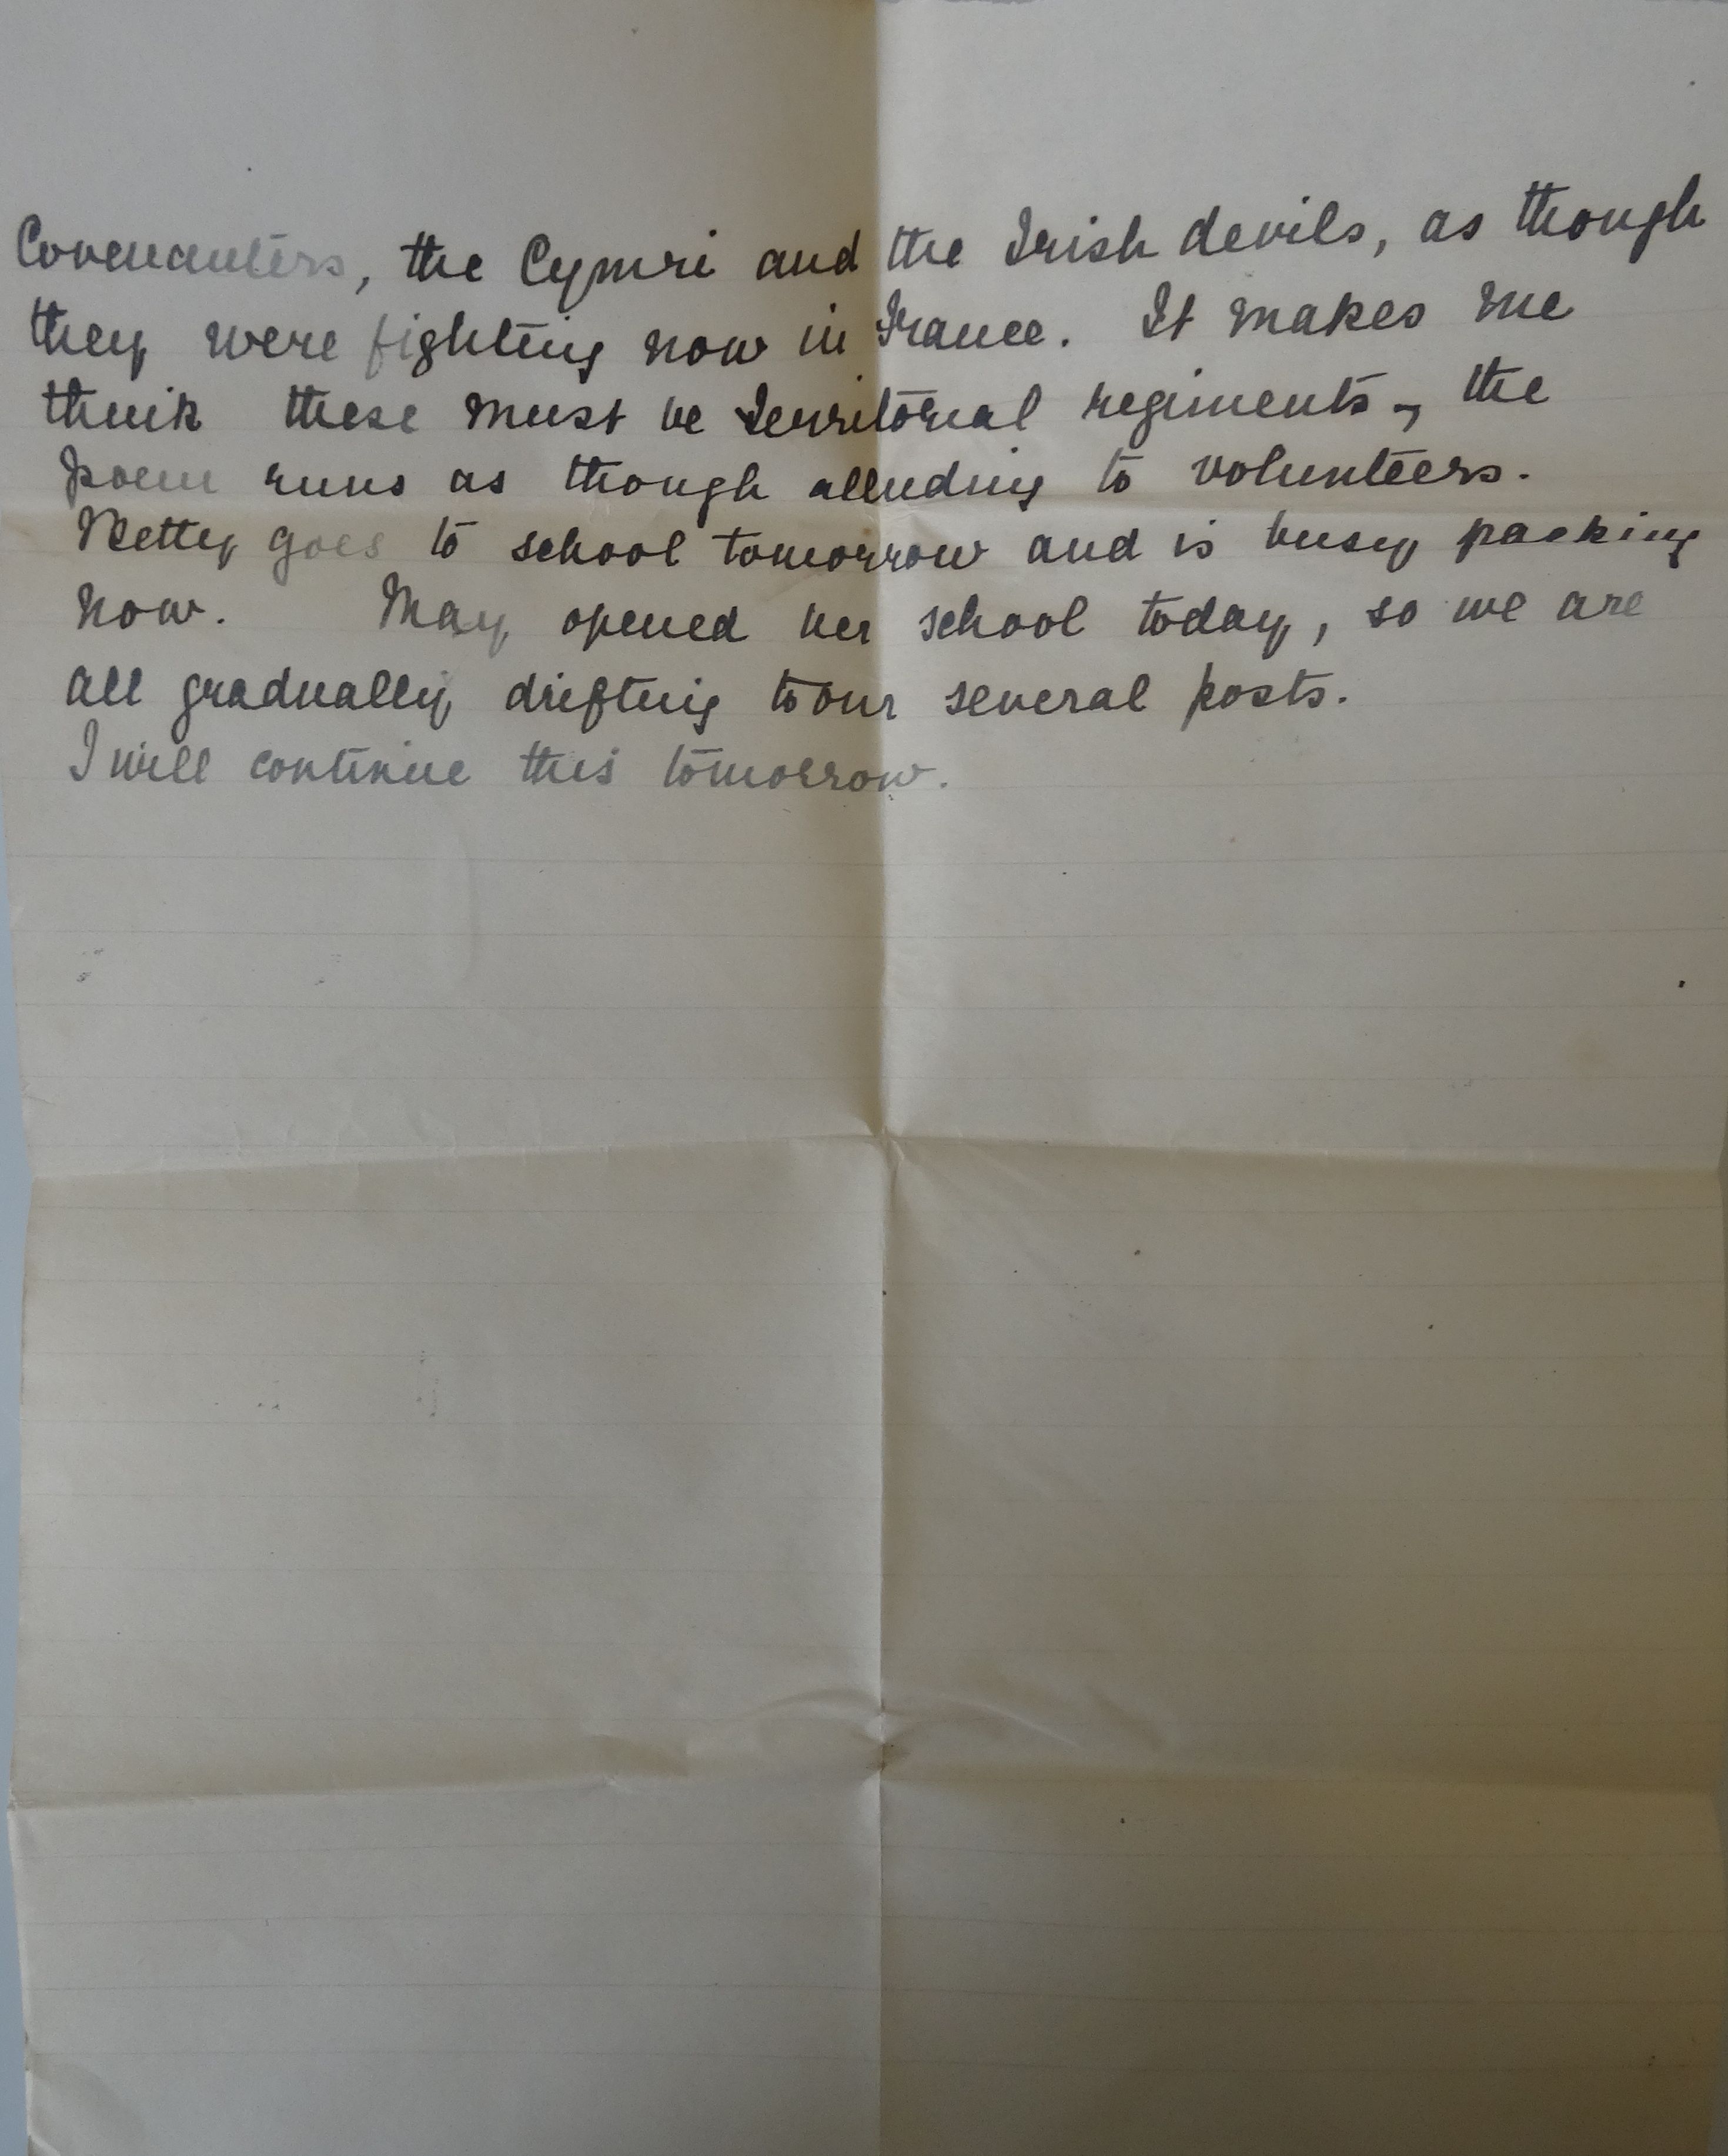 Covenanters, the Cymri and the Irish devils, as though
they were fighting now in France. It makes me
think these must be Territorial regiments, the
poem runs as though alluding to volunteers.
Netty goes to school tomorrow and is busy packing
now. May opened her school today, so we are
all gradually drifting to our several posts.
I will continue this tomorrow.